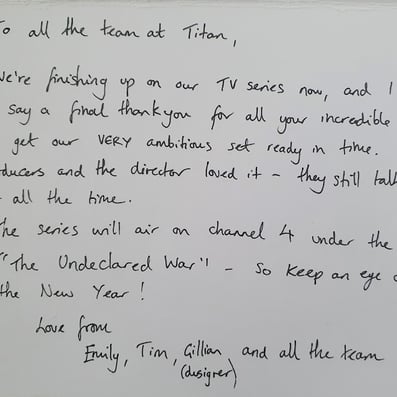 To all the team at Titan,
We're finishing up on our TV series now, and I
say a final thankyou for all your incredible
get our VERY ambitious set ready in time.
ducers and the director loved it - they still talk
all the time.
The series will air on channel 4 under the
"The Undeclared War" - so keep an eye o
the New Year!
Love from
Emily, Tim, Gillian and all the team
(designer)